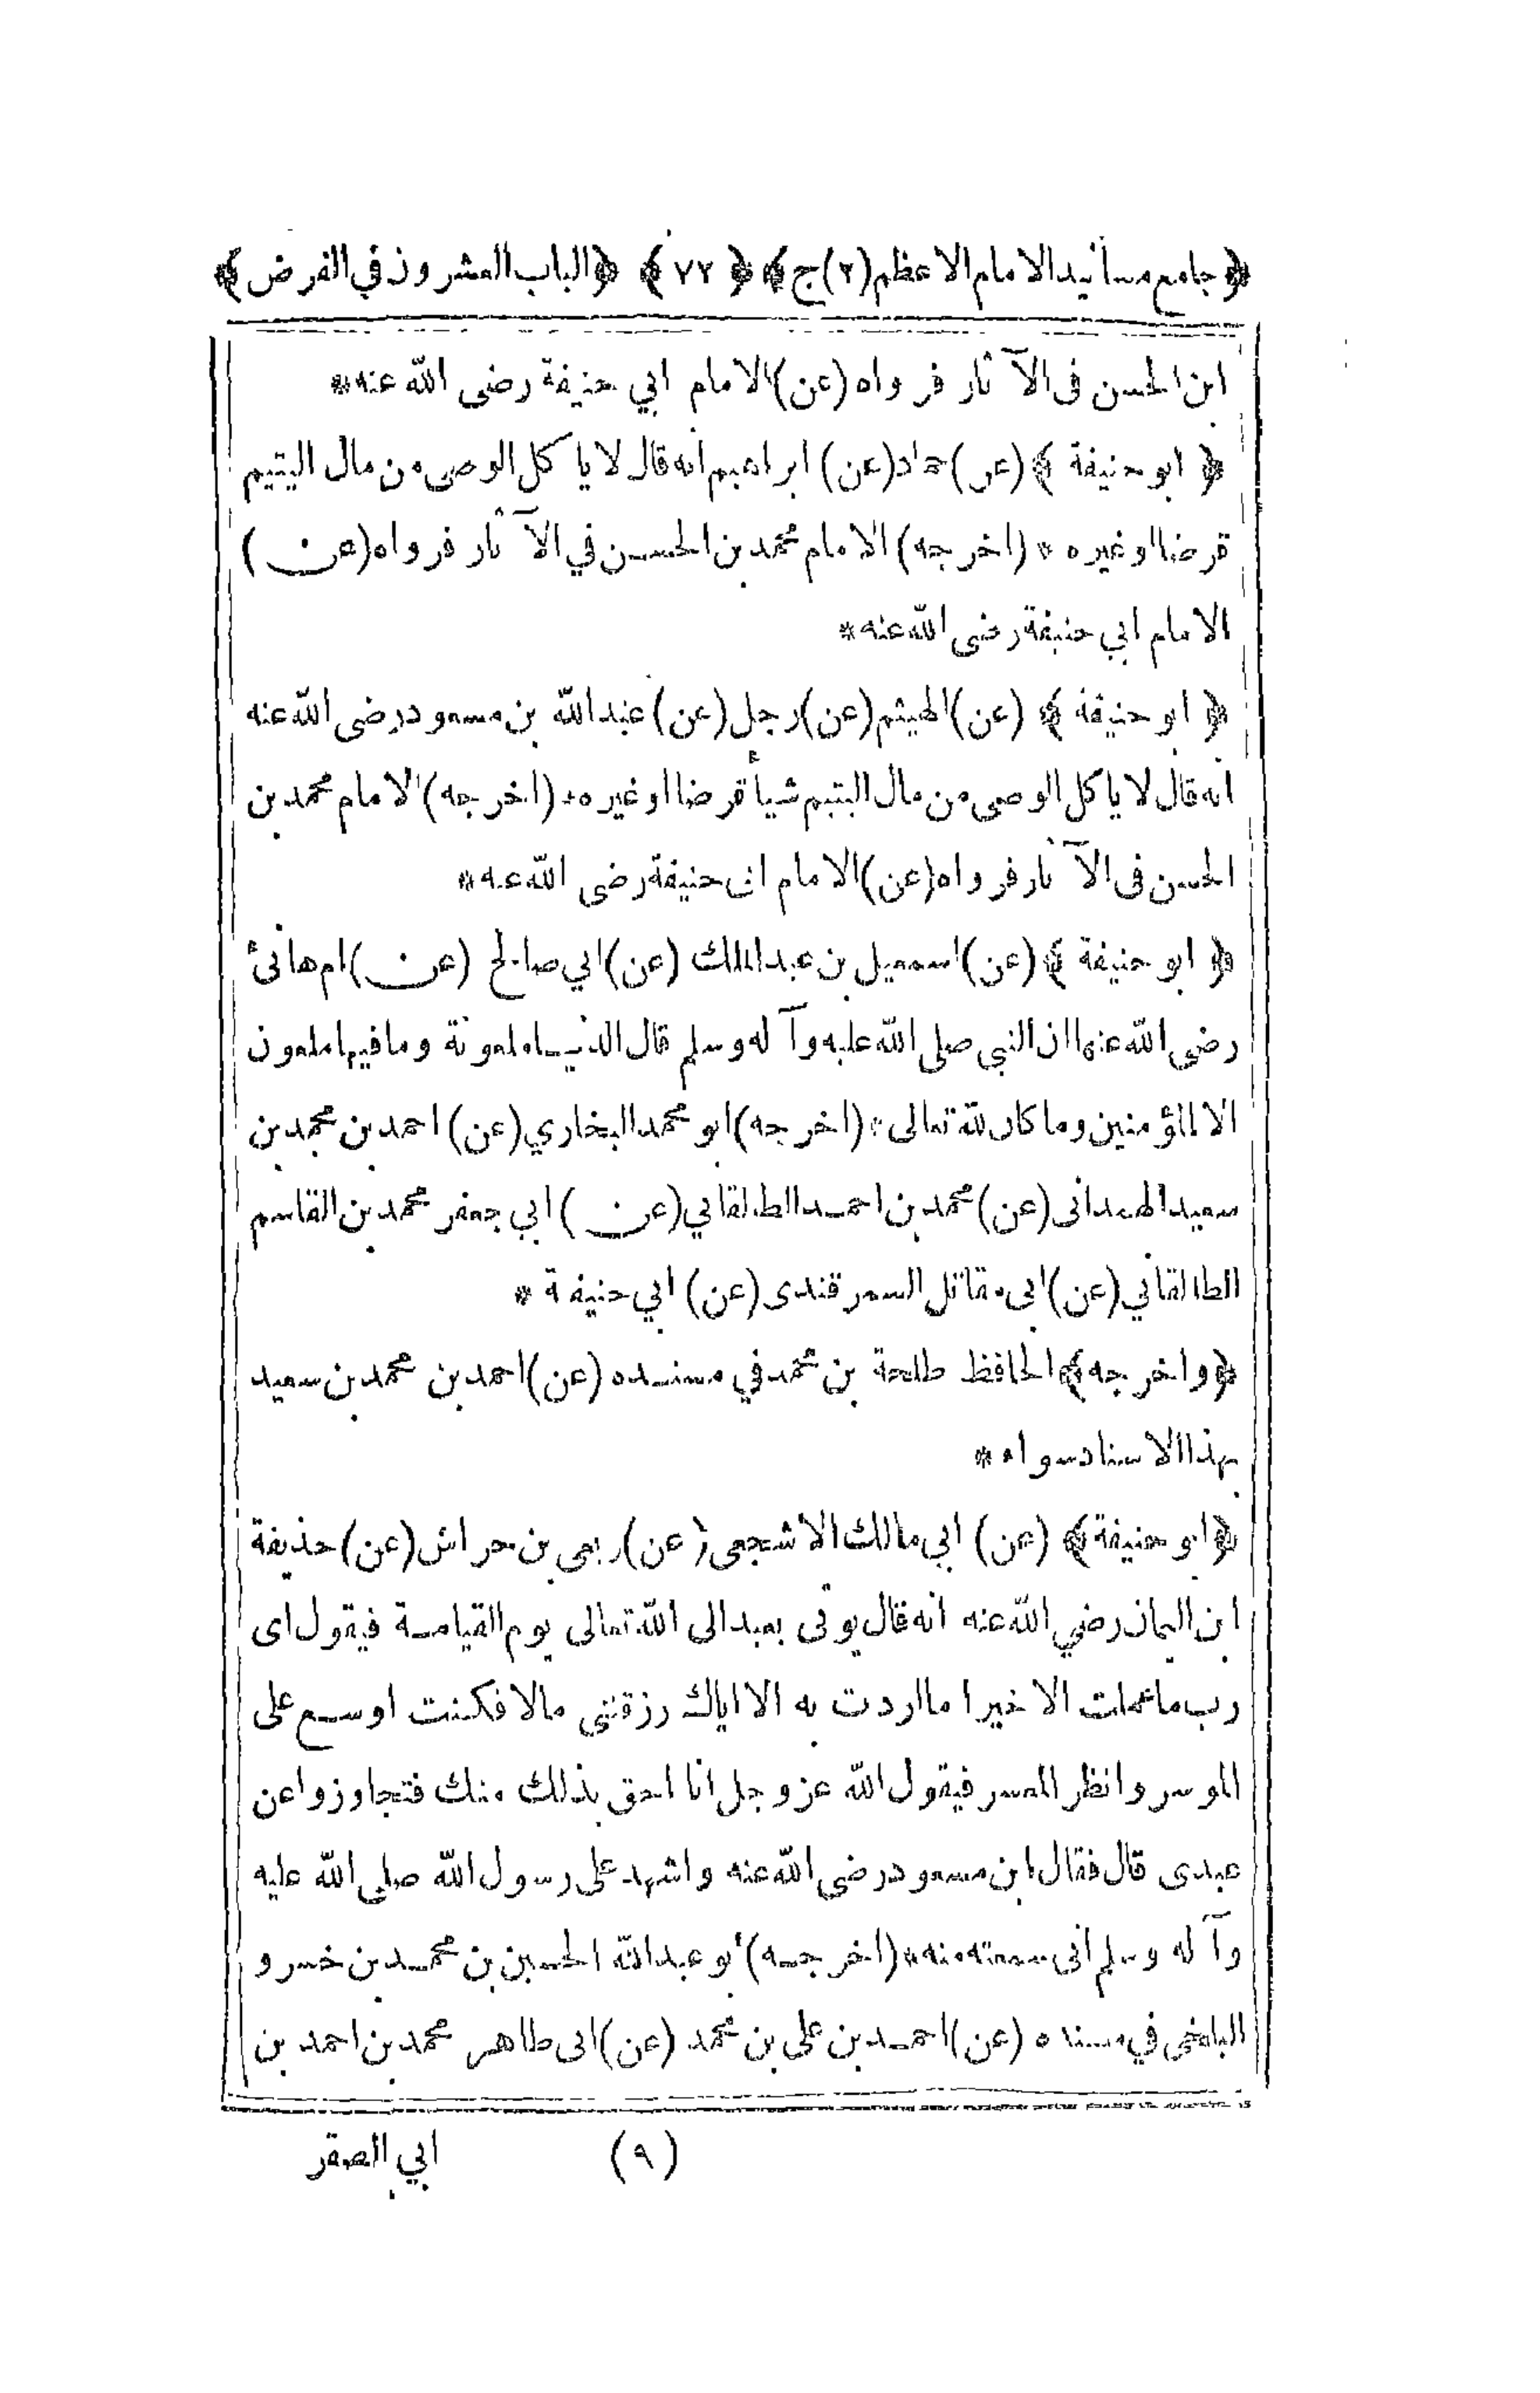 ﴿جامع مسانيد الامام الاعظم(٢)ج﴾ ﴿٧٢﴾ ﴿الباب العشرون في القرض﴾
ابن الحسن فى الآثار فرواه (عن) الامام ابي حنيفة رضى الله عنه*
﴿ابو حنيفة﴾ (عن) حماد (عن) ابراهيم انه قال لا ياكل الوصى من مال اليتيم
قرضا او غيره * (اخرجه) الامام محمد بن الحسن في الآثار فرواه (عن)
الامام ابي حنيفة رضى الله عنه*
﴿ابو حنيفة﴾ (عن) الهيثم (عن) رجل (عن) عبد الله بن مسعود رضى الله عنه
انه قال لا ياكل الوصى من مال اليتيم شيأ قرضا او غيره* (اخرجه) الامام محمد بن
الحسن فى الآثار فرواه (عن) الامام ابى حنيفة رضى الله عنه*
﴿ابو حنيفة﴾ (عن) اسمعيل بن عبد الملك (عن) ابي صالح (عن) ام هانئ
رضى الله عنها ان النبي صلى الله عليه وآله وسلم قال الدنيا ملعونة وما فيها ملعون
الا المؤمنين وما كان لله تعالى* (اخرجه) ابو محمد البخاري (عن) احمد بن محمد بن
سعيد الهمدانى (عن) محمد بن احمد الطالقاني (عن) ابي جعفر محمد بن القاسم
الطالقاني (عن) ابى مقاتل السمرقندى (عن) ابي حنيفة *
﴿واخرجه﴾ الحافظ طلحة بن محمد في مسنده (عن) احمد بن محمد بن سعيد
بهذا الاسناد سواء *
﴿ابو حنيفة﴾ (عن) ابي مالك الاشجعى (عن) ربعى بن حراش (عن) حذيفة
ابن اليمان رضي الله عنه انه قال يوتى بعبد الى الله تعالى يوم القيامة فيقول اى
رب ما عملت الا خيرا ما اردت به الا اياك رزقتنى مالا فكنت اوسع على
الموسر وانظر المعسر فيقول الله عز وجل انا احق بذلك منك فتجاوزوا عن
عبدى قال فقال ابن مسعود رضى الله عنه واشهد على رسول الله صلى الله عليه
وآله وسلم انى سمعته منه* (اخرجه) ابو عبد الله الحسين بن محمد بن خسرو
البلخى في مسنده (عن) احمد بن على بن محمد (عن) ابى طاهر محمد بن احمد بن
(٩) ابي الصقر